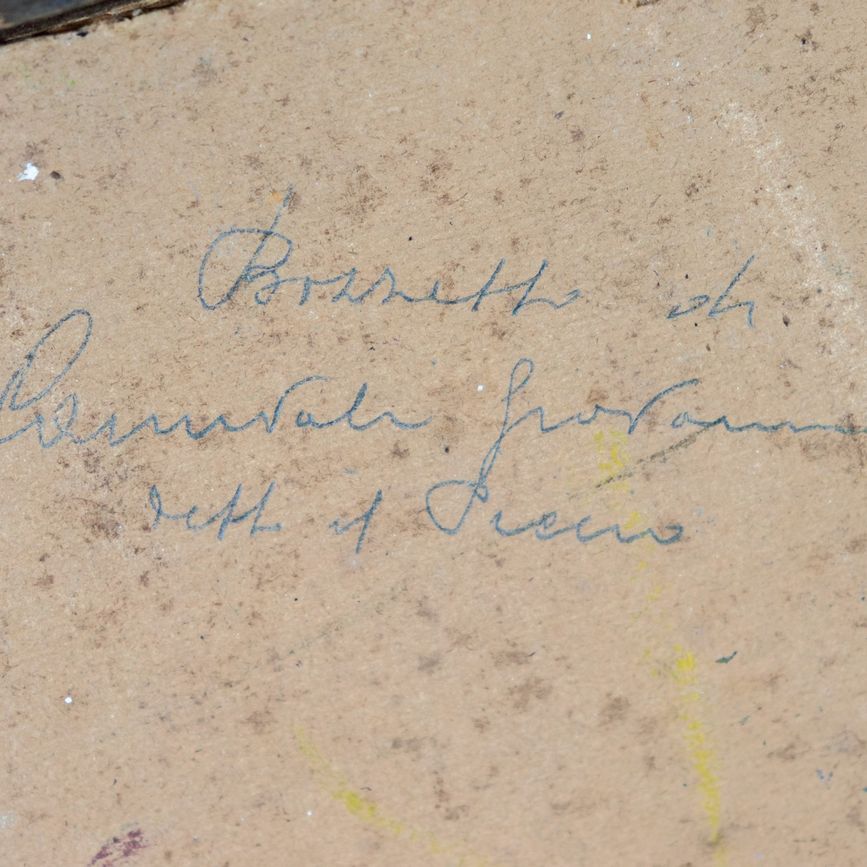 Bozzetto di
Carnevali Giovanni
detto il Piccio